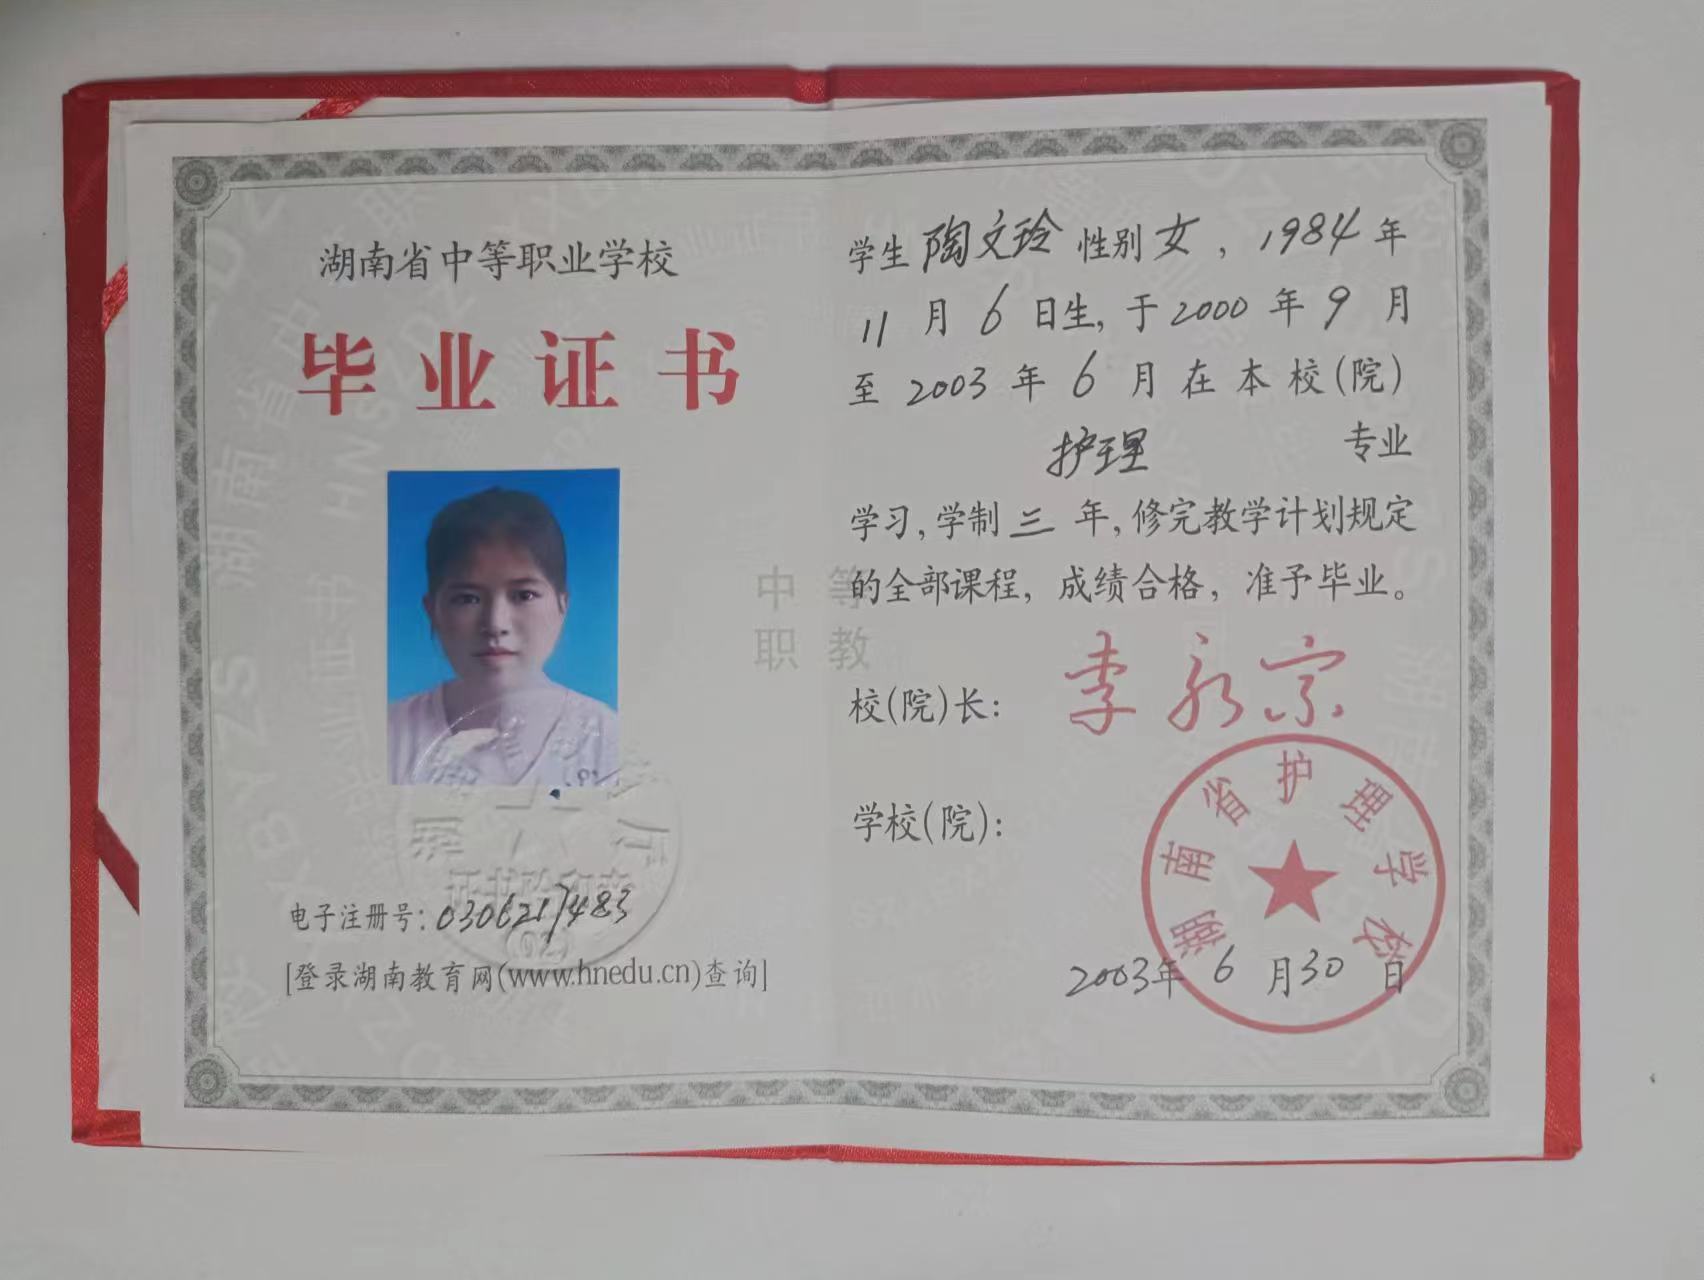 湖南省中等职业学校
毕业证书
电子注册号：0306217483
[登录湖南教育网(www.hnedu.cn)查询]
中等
职教
学生 陶文玲 性别 女，1984 年
11 月 6 日生，于 2000 年 9 月
至 2003 年 6 月 在 本 校(院)
护理 专业
学习，学制 三 年，修完教学计划规定
的全部课程，成绩合格，准予毕业。
校(院)长： 李永宗
学校(院)：
湖南省护理学校
2003年 6 月30 日